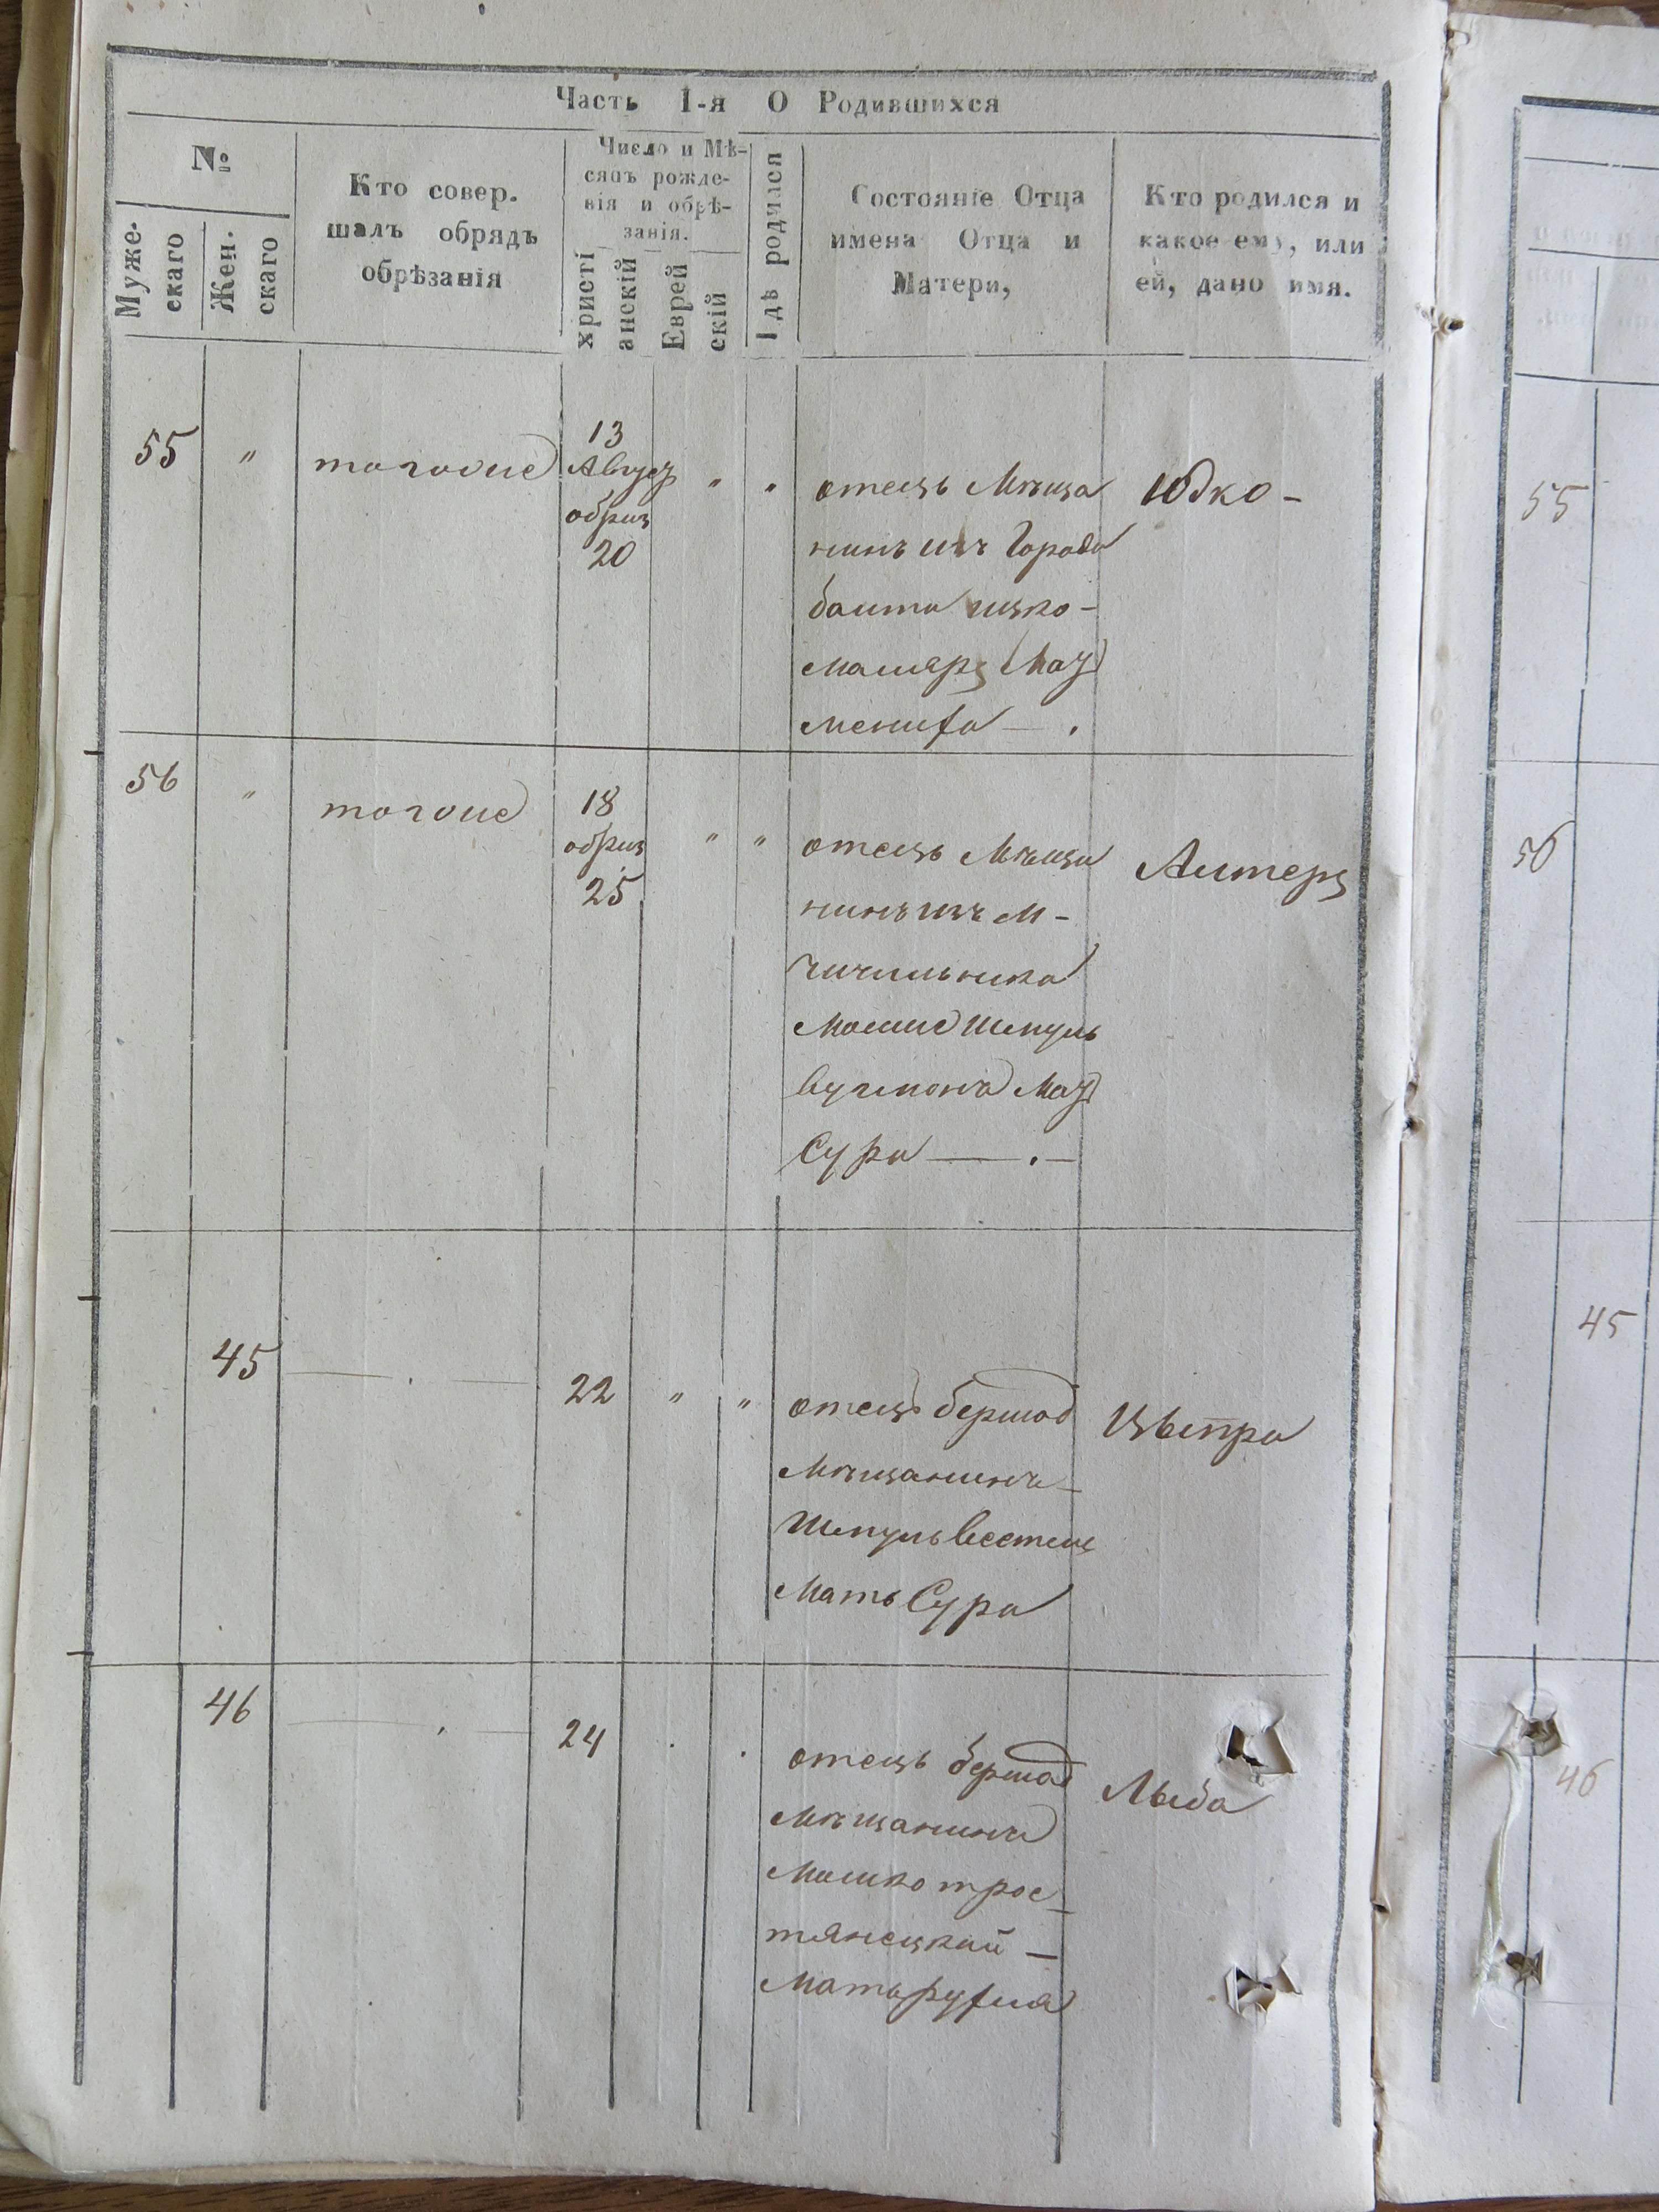 Часть I-я О Родившихся
№
Муже-
скаго
Жен.
скаго
Кто совер.
шалъ обрядъ
обрѣзанія
Число и Мѣ-
сяцъ рожде-
нія и обрѣ-
занія.
христі
анскій
Еврей
скій
Гдѣ родился
Состояніе Отца
имена Отца и
Матери,
Кто родился и
какое ему, или
ей, дано имя.
55
"
13
обриз
20
"
"
отецъ Мѣща
нинъ изъ Города
балта ицко-
маляръ
Юдко-
55
56
"
тогоже
18
обриз
25
"
"
отецъ Мѣща
нинъ изъ м-
чичильника
Мошко Шмуль
Сура
Альтеръ
56
45
22
"
"
отецъ бершад
Мѣщанинъ
Шмуль
Мать Сура
45
46
24
отецъ бершад
мѣщанинъ
Мошко трос-
тянецкий -
Мать
Лыба
46